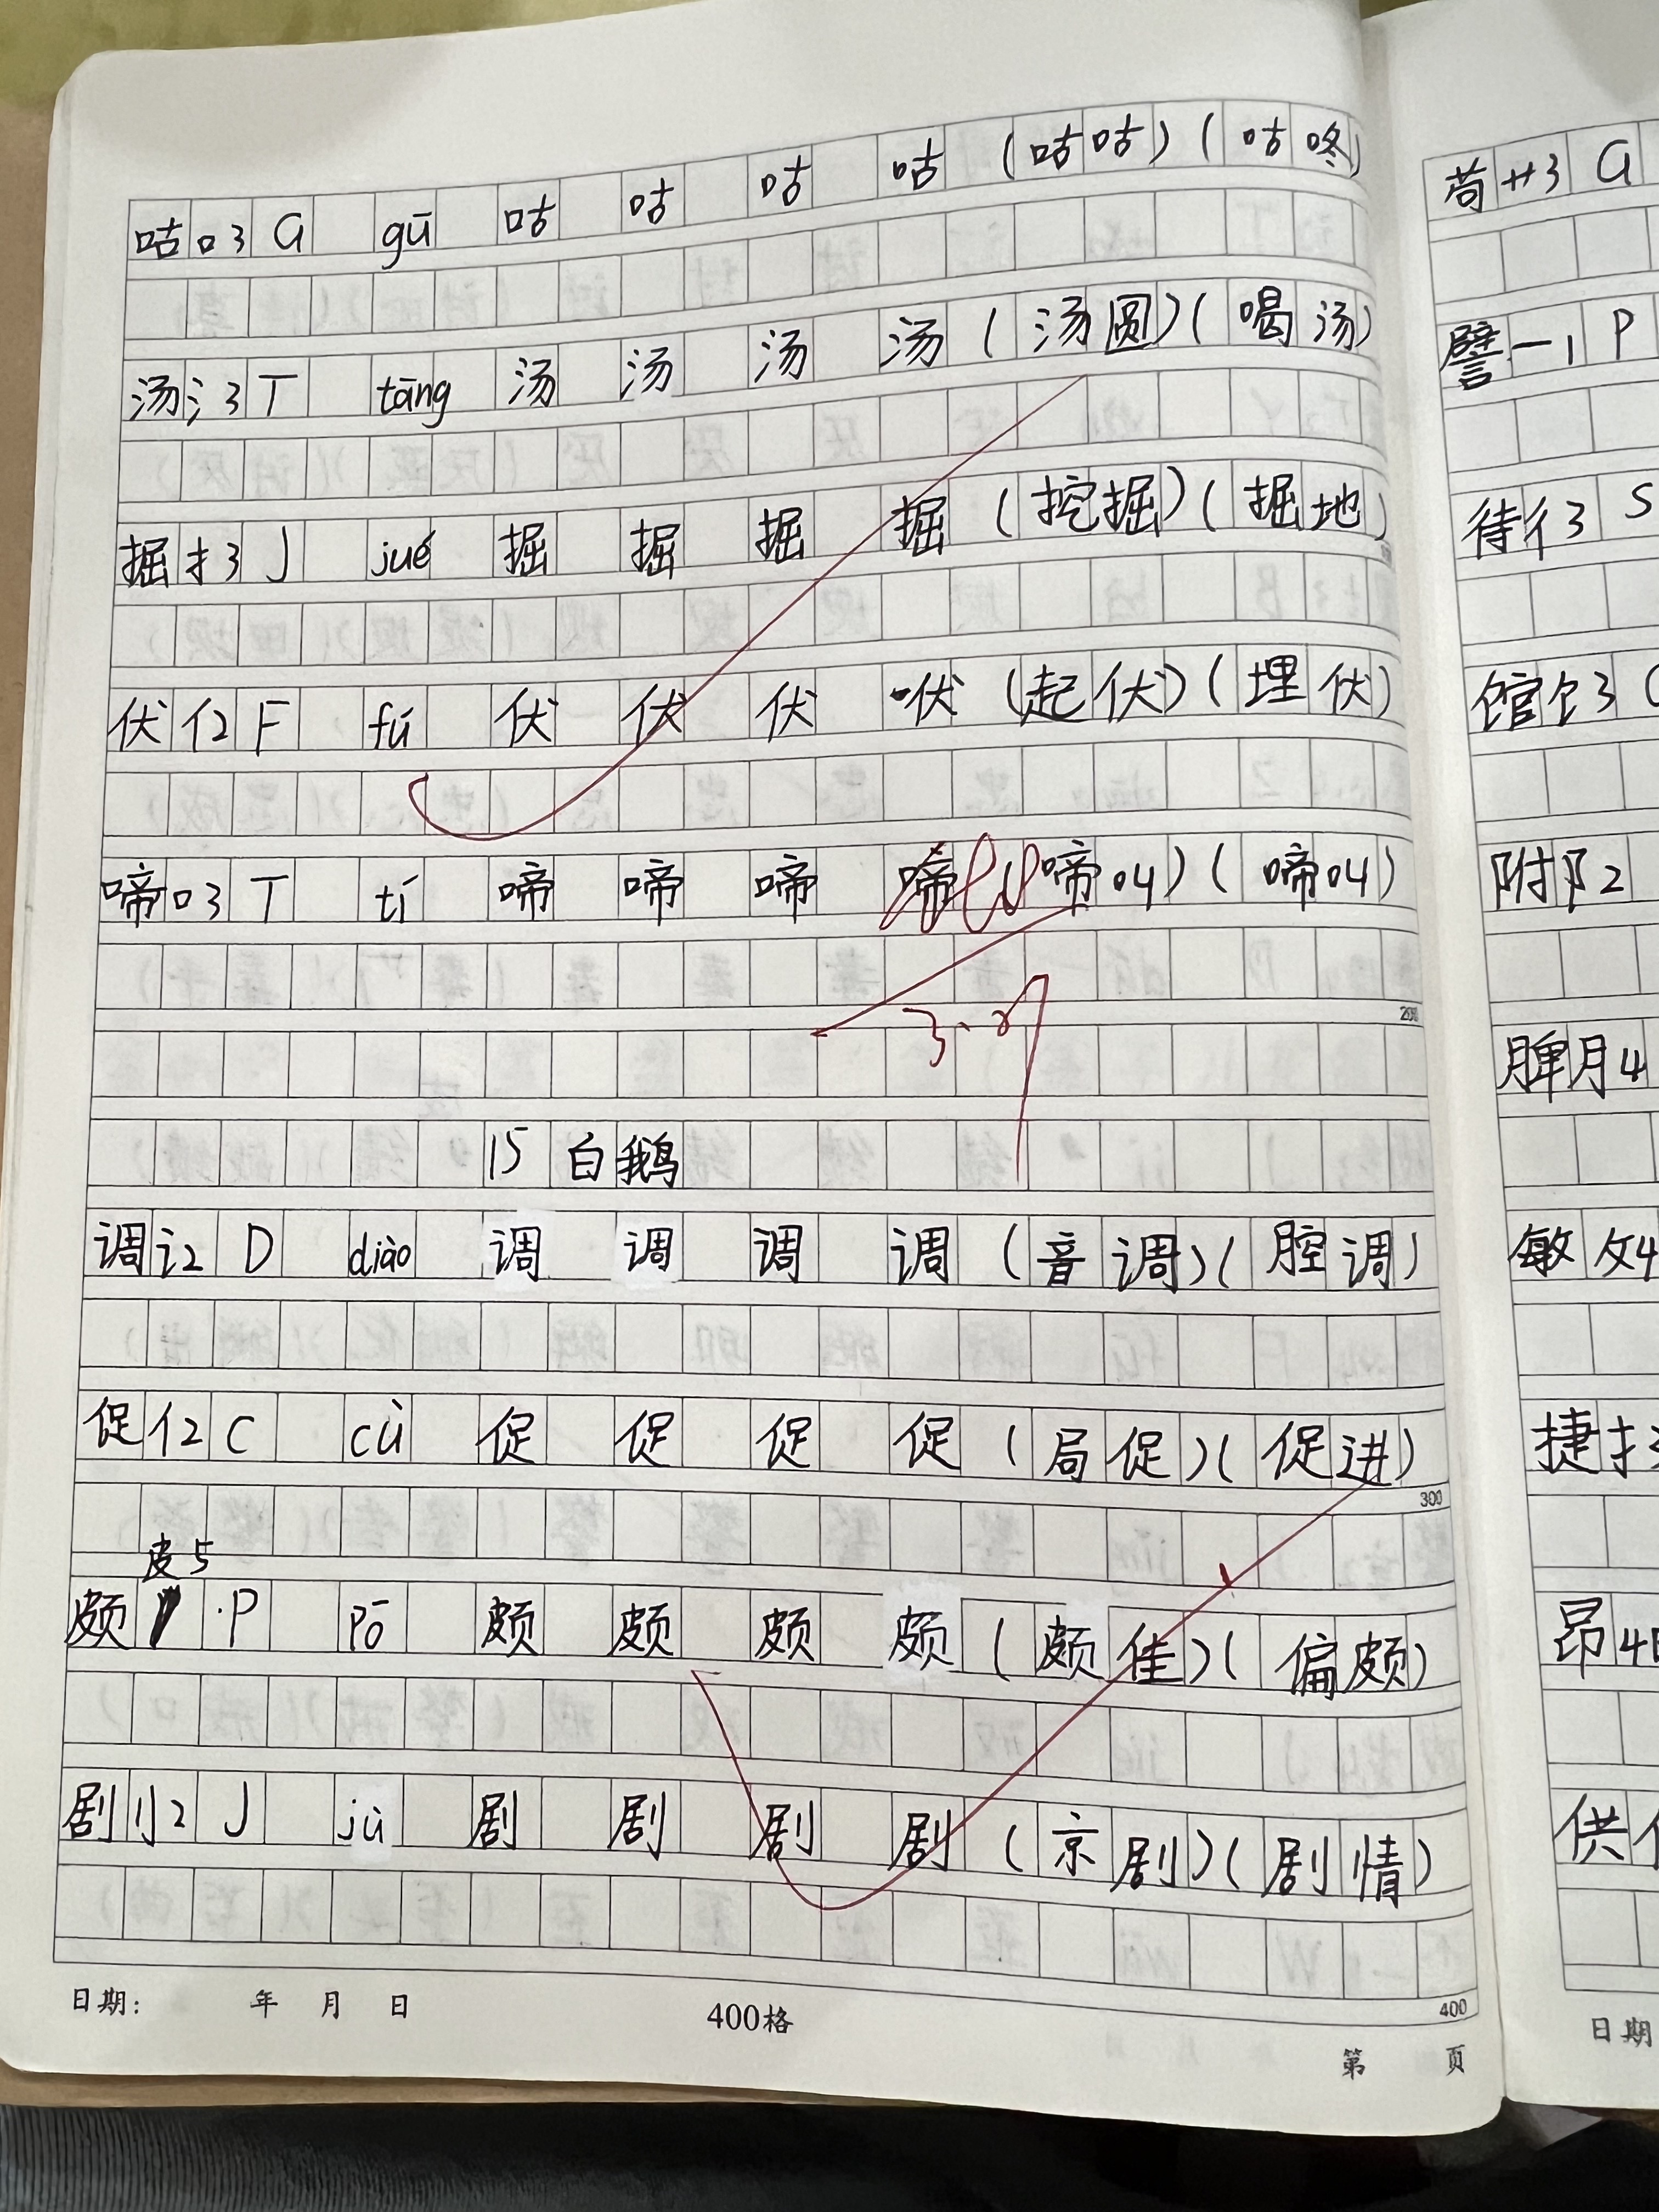 咕口3 G gū 咕 咕 咕 咕 (咕咕)(咕咚)
汤氵3 T tāng 汤 汤 汤 汤 (汤圆)(喝汤)
掘扌3 J jué 掘 掘 掘 掘 (挖掘)(掘地)
伏亻2 F fú 伏 伏 伏 伏 (起伏)(埋伏)
啼口3 T tí 啼 啼 啼 啼 (啼叫)(啼叫)
200
15 白鹅
调讠2 D diào 调 调 调 调 (音调)(腔调)
促亻2 C cù 促 促 促 促 (局促)(促进)
300
皮5
颇 P pō 颇 颇 颇 颇 (颇佳)(偏颇)
剧刂2 J jù 剧 剧 剧 剧 (京剧)(剧情)
400
日期: 年 月 日
400格
第 页
苟艹3 G
譬一1 P
待彳3 S
馆饣3
附阝2
脾月4
敏攵4
捷扌3
昂4日
供亻
日期